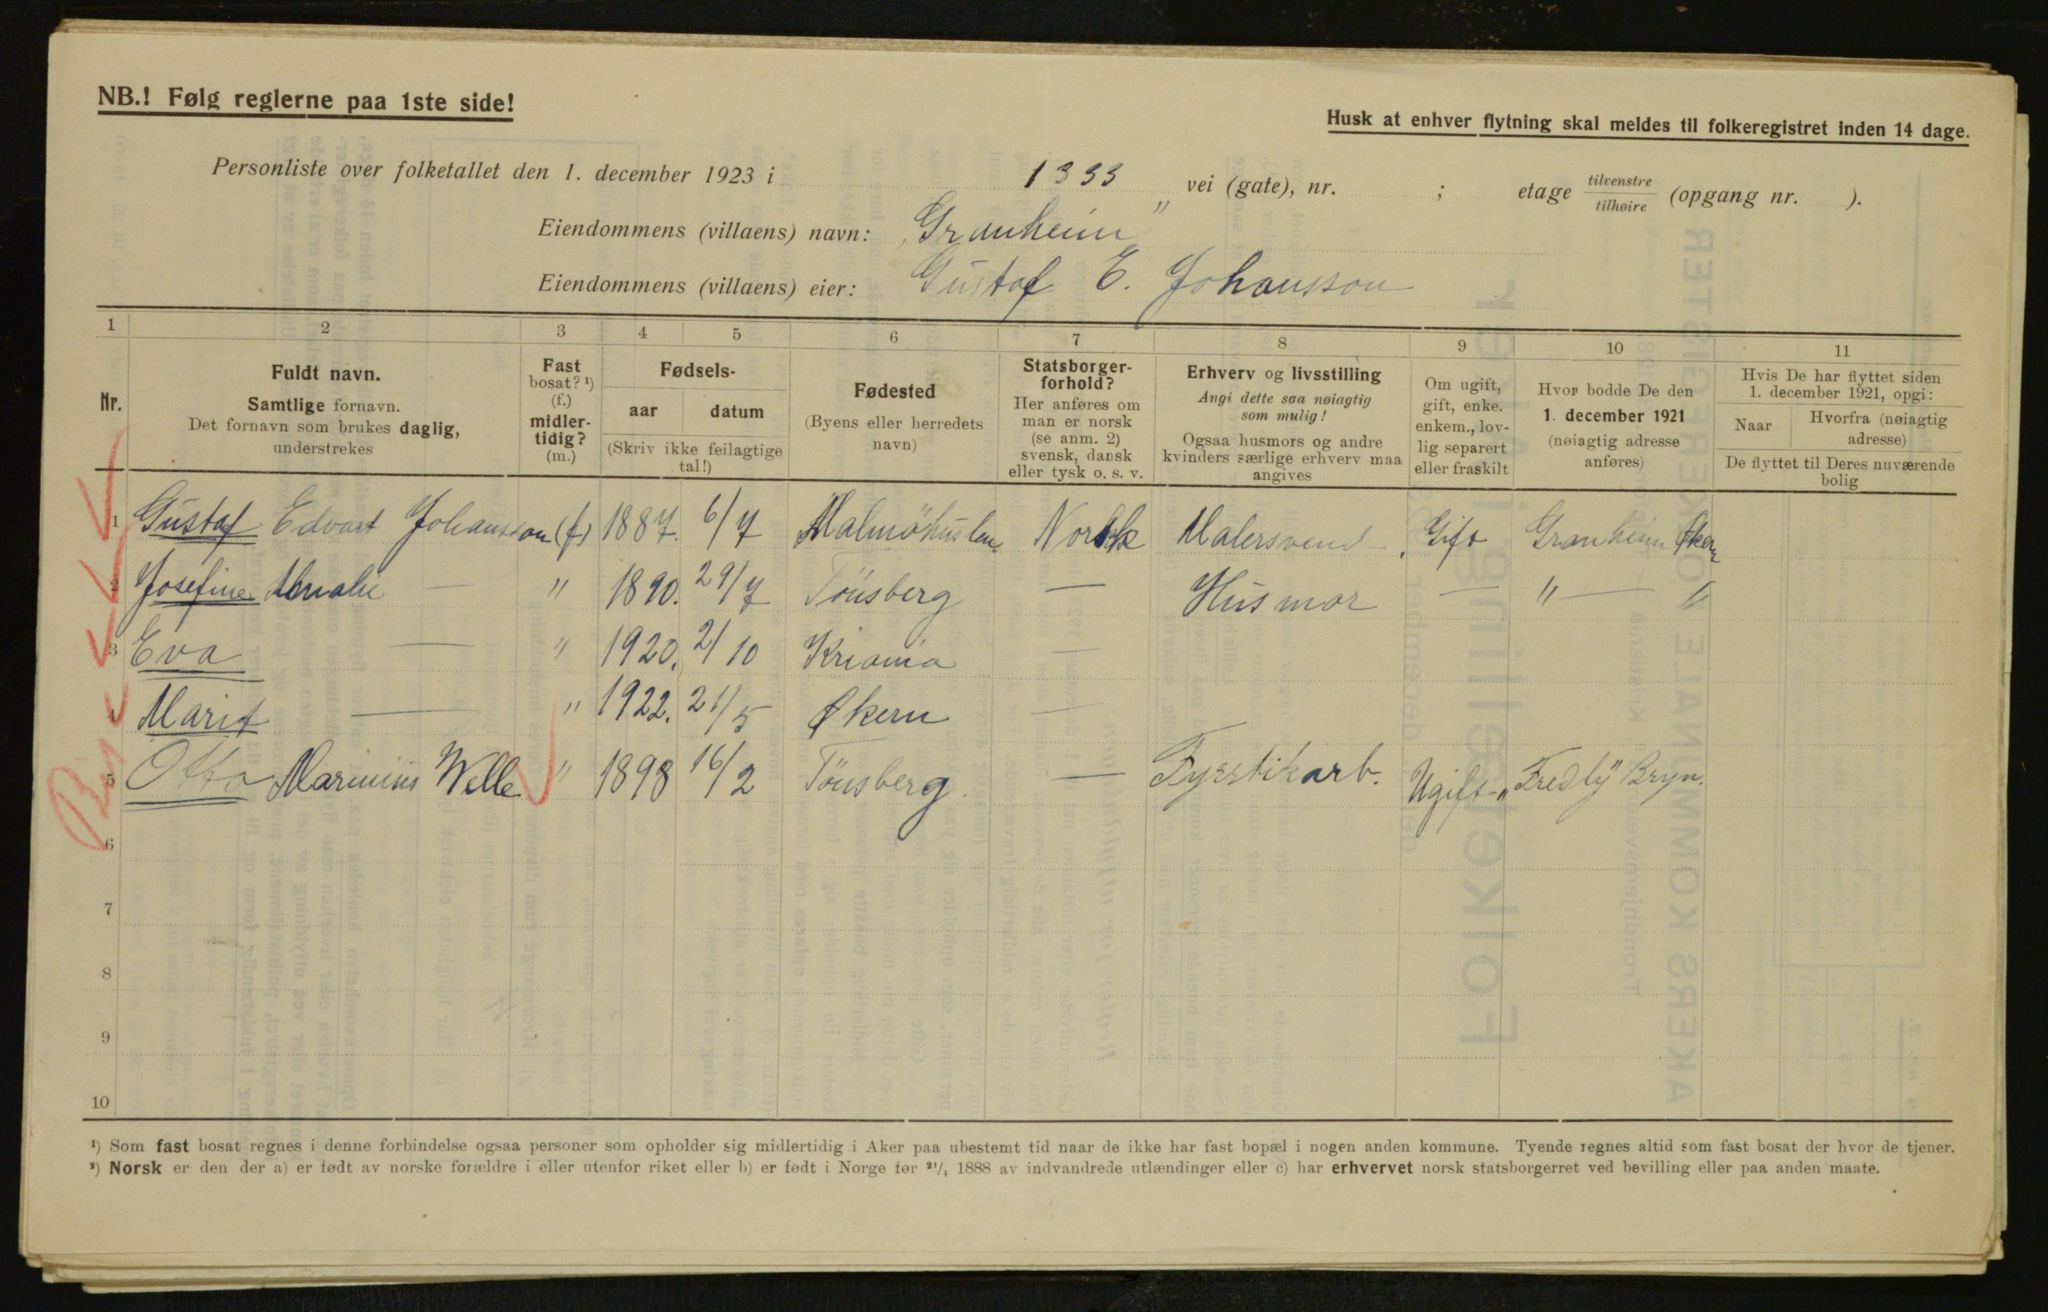 NB.! Følg reglerne paa 1ste side!
Husk at enhver flytning skal meldes til folkeregistret inden 14 dage.
Personliste over folketallet den 1. december 1923 i 1333 vei (gate), nr. ; etage tilvenstre/tilhøire (opgang nr. ).
Eiendommens (villaens) navn: „Granheim"
Eiendommens (villaens) eier: Gustaf E. Johansson
1 2 3 4 5 6 7 8 9 10 11
Nr.
Fuldt navn.
Samtlige fornavn.
Det fornavn som brukes daglig,
understrekes
Fast
bosat? ¹)
(f.)
midler-
tidig?
(m.)
Fødsels-
aar datum
(Skriv ikke feilagtige
tal!)
Fødested
(Byens eller herredets
navn)
Statsborger-
forhold?
Her anføres om
man er norsk
(se anm. 2)
svensk, dansk
eller tysk o. s. v.
Erhverv og livsstilling
Angi dette saa nøiagtig
som mulig!
Ogsaa husmors og andre
kvinders særlige erhverv maa
angives
Om ugift,
gift, enke.
enkem., lov-
lig separert
eller fraskilt
Hvor bodde De den
1. december 1921
(nøiagtig adresse
anføres)
Hvis De har flyttet siden
1. december 1921, opgi:
Naar
Hvorfra (nøiagtig
adresse)
De flyttet til Deres nuværende
bolig
1 Gustaf Edvart Johansson (f) 1887. 6/7 Malmöhuslen Norsk Malersvend Gift Granheim Økern
2 Josefine Amalie — " 1890. 29/7 Tönsberg — Husmor — " — "
3 Eva — " 1920. 2/10 Kriania —
4 Marit — " 1922. 21/5 Økern —
5 Otto Marinius Welle " 1898 16/2 Tönsberg — Fyrstikarb. Ugift „Fredly" Bryn.
6
7
8
9
10
¹) Som fast bosat regnes i denne forbindelse ogsaa personer som opholder sig midlertidig i Aker paa ubestemt tid naar de ikke har fast bopæl i nogen anden kommune. Tyende regnes altid som fast bosat der hvor de tjener.
²) Norsk er den der a) er født av norske forældre i eller utenfor riket eller b) er født i Norge før ²¹/₄ 1888 av indvandrede utlændinger eller c) har erhvervet norsk statsborgerret ved bevilling eller paa anden maate.